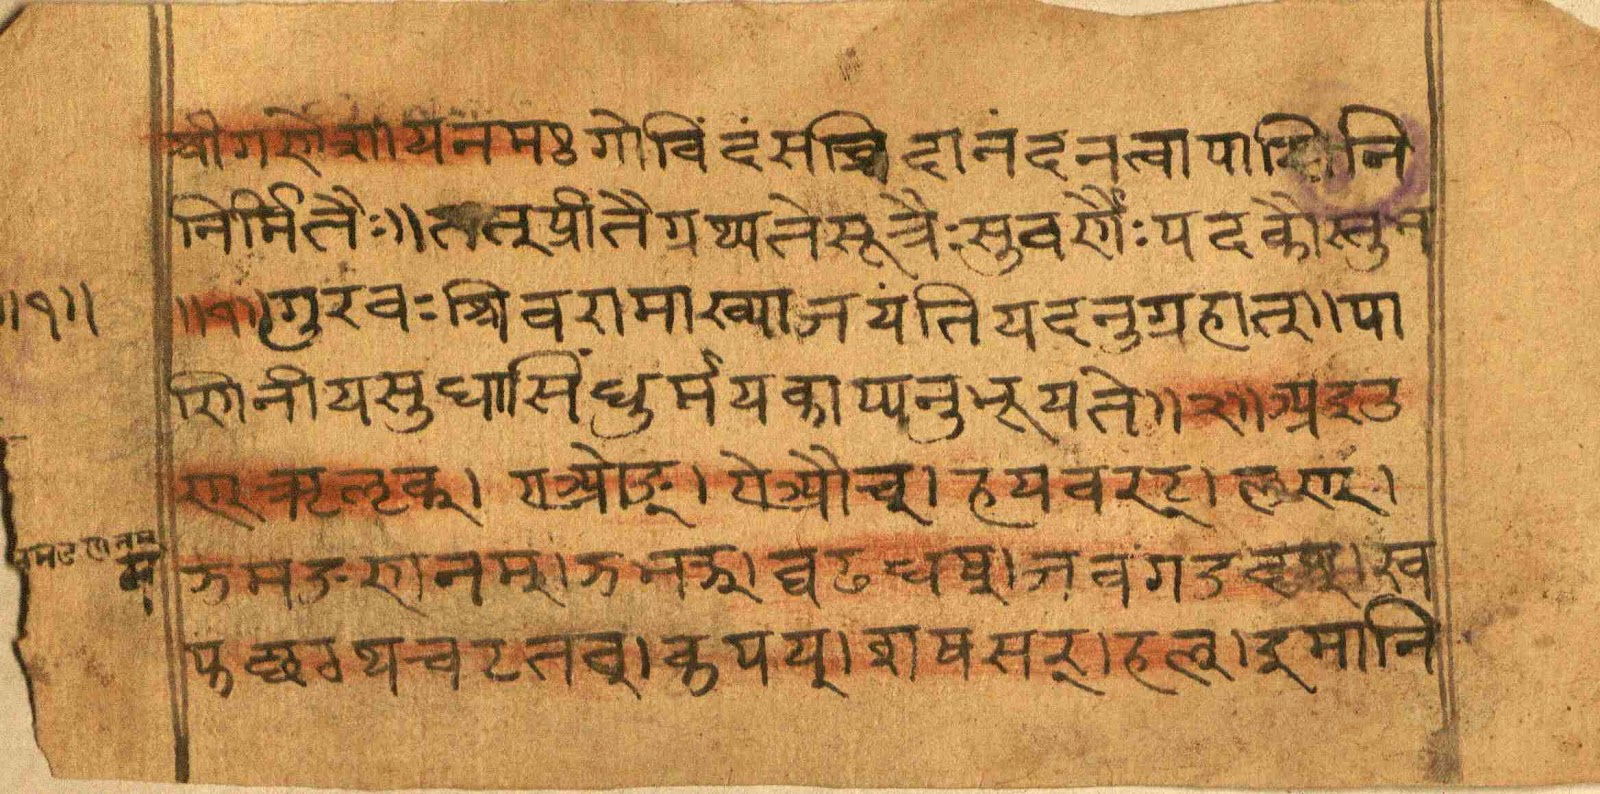 श्रीगणेशाय नमः गोविंदं सच्चिदानंदं नत्वा पाणिनि
निर्मितैः॥ तत्प्रीतै ग्रथ्यते सूत्रैः सुवर्णैः पदकौस्तुभ
॥१॥ गुरवः शिवरामाख्या जयंति यदनुग्रहात्॥ पा
॥१॥
णिनीयसुधासिंधुर्मयकाप्यनुभूयते॥ २॥ अइउ
ण् ऋलृक्। एओङ्। ऐऔच्। हयवरट्। लण्।
ञमङणनम्। झभञ्। घढधष्। जबगडदश्। ख
फछठथचटतव्। कपय्। शषसर्। हल्। इमानि